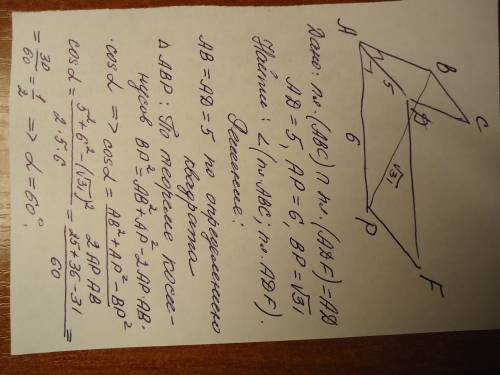 A B C D P F 5 6 √31
Дано: пл. (ABC) ∩ пл. (ADF) = AD
AD = 5, AP = 6, BP = √31
Найти: ∠(пл. ABC; пл. ADF).
Решение:
AB = AD = 5 по определению
квадрата
△ ABP: По теореме коси-
нусов BP² = AB² + AP² - 2AP·AB·
·cosα => cosα = AB² + AP² - BP² / 2AP·AB
cosα = 5² + 6² - (√31)² / 2·5·6 = 25 + 36 - 31 / 60 =
= 30/60 = 1/2 => α = 60°.